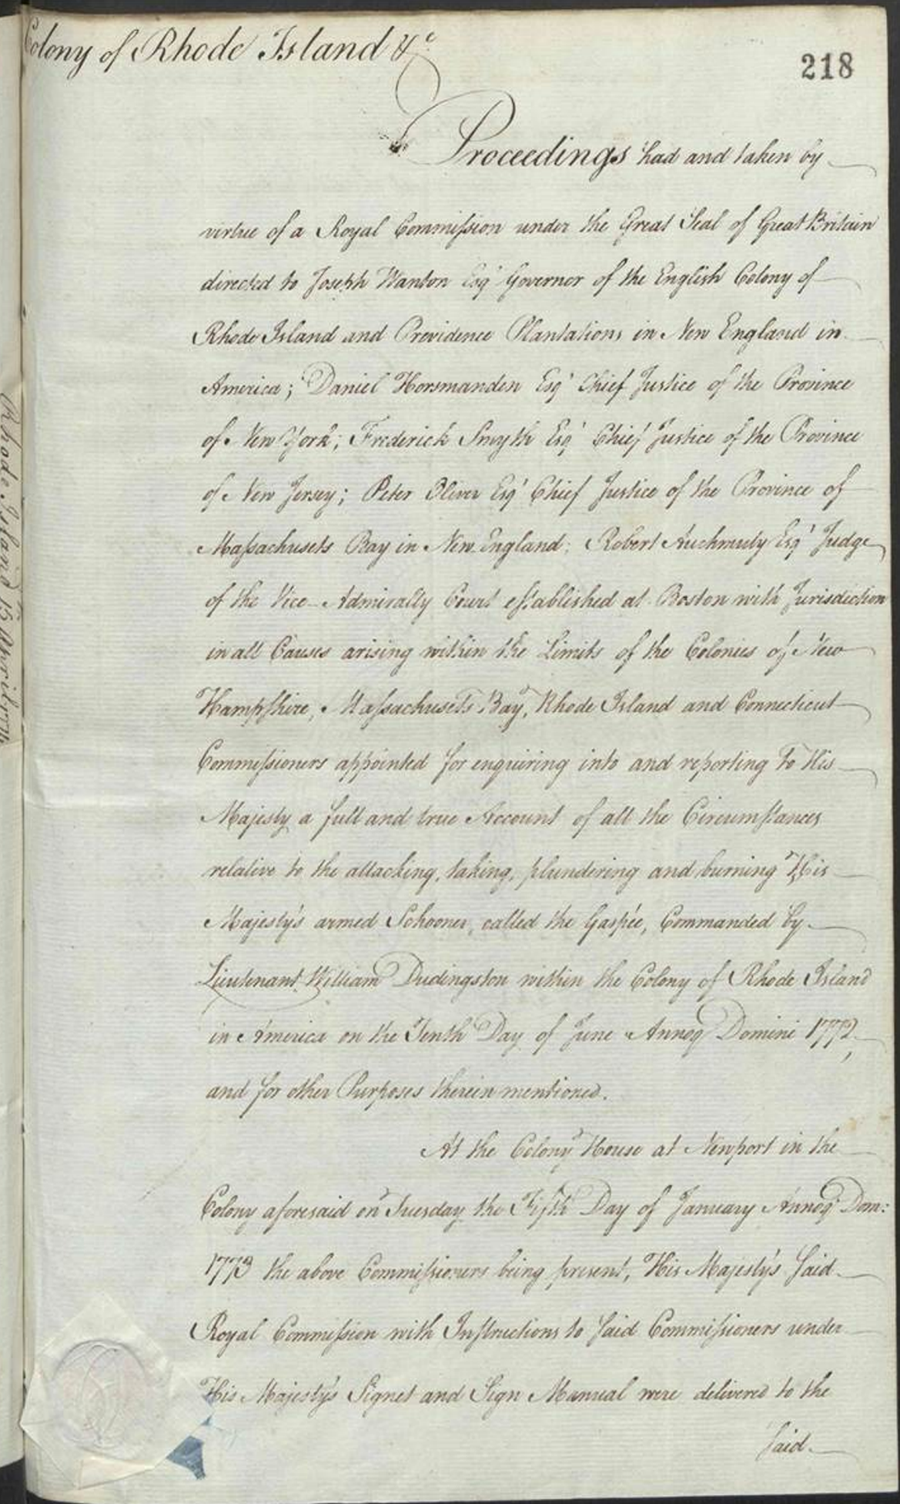 Colony of Rhode Island &c.
218
Proceedings had and taken by
virtue of a Royal Commission under the Great Seal of Great Britain
directed to Joseph Wanton Esqr Governor of the English Colony of
Rhode Island and Providence Plantations in New England in
America; Daniel Horsmanden Esqr Chief Justice of the Province
of New York; Frederick Smyth Esqr Chief Justice of the Province
of New Jersey; Peter Oliver Esqr Chief Justice of the Province of
Massachusets Bay in New England; Robert Auchmuty Esqr Judge
of the Vice Admiralty Court established at Boston with Jurisdiction
in all Causes arising within the Limits of the Colonies of New
Hampshire, Massachusets Bay, Rhode Island and Connecticut
Commissioners appointed for enquiring into and reporting to His
Majesty a full and true Account of all the Circumstances
relative to the attacking, taking, plundering and burning His
Majesty's armed Schooner, called the Gaspée, Commanded by
Lieutenant William Dudingston within the Colony of Rhode Island
in America on the Tenth Day of June Annoq Domini 1772,
and for other Purposes therein mentioned.
At the Colony House at Newport in the
Colony aforesaid on Tuesday the Fifth Day of January Annoq Dom:
1773 the above Commissioners being present, His Majesty's said
Royal Commission with Instructions to said Commissioners under
His Majesty's Signet and Sign Manual were delivered to the
said
Rhode Island